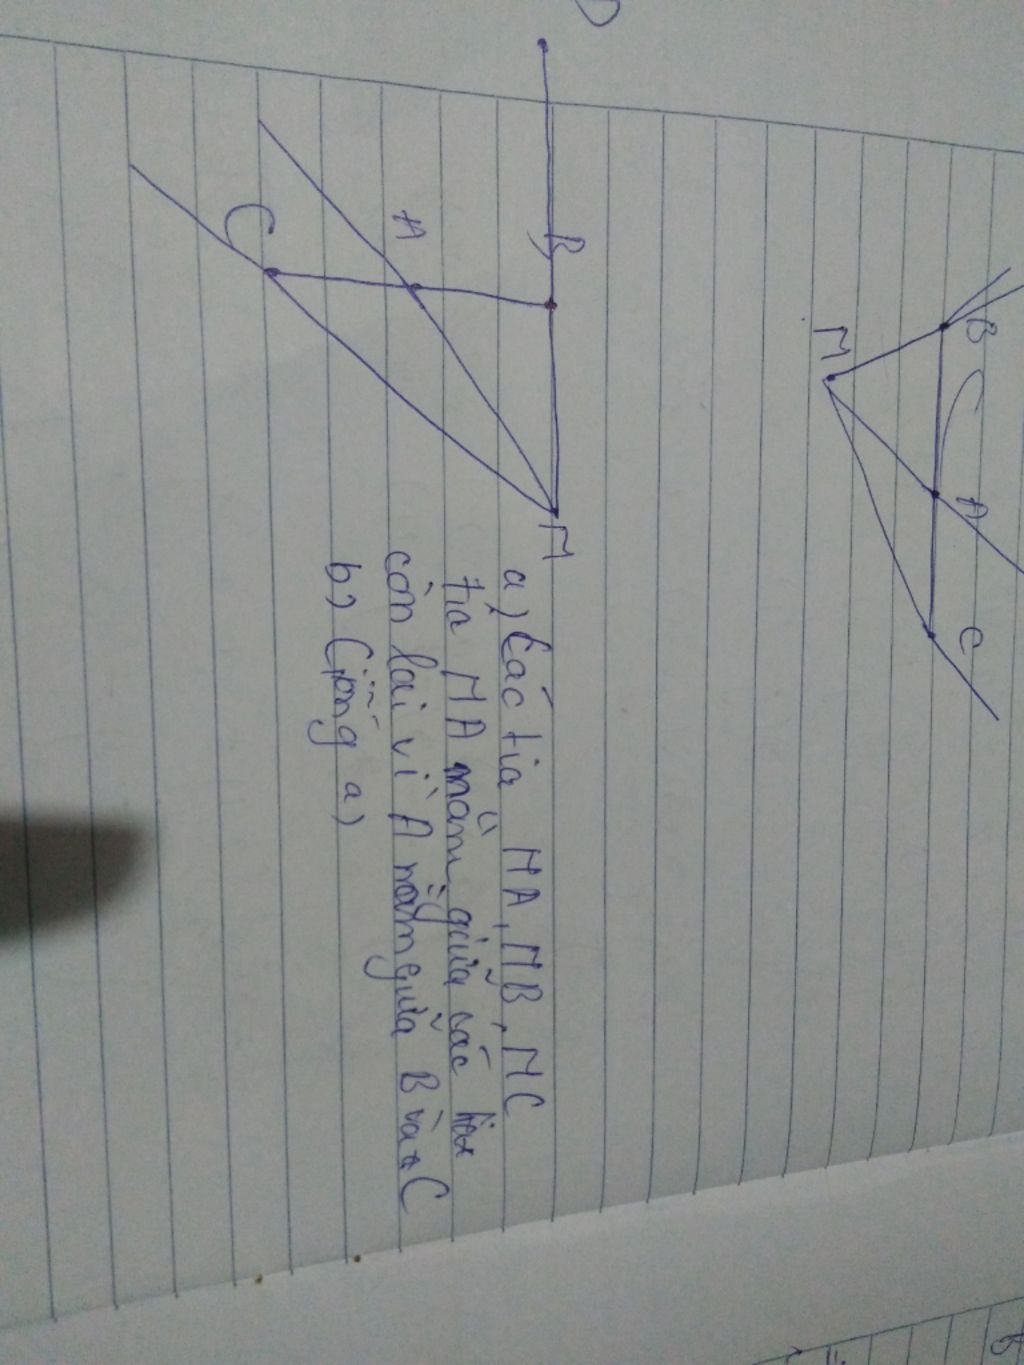 M
B
A
C
B
A
C
M
a) Các tia MA, MB, MC
tia MA nằm giữa các tia
còn lại vì A nằm giữa B và C
b) Giống a)